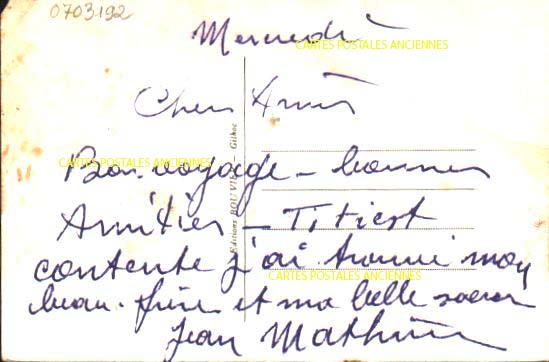 0703192
Mercredi
CARTES POSTALES ANCIENNES
Chers Amis
CARTES POSTALES ANCIENNES
Bon voyage - bonnes
Amitiés - Titi est
contente j'ai trouvé mon
CARTES POSTALES ANCIENNES
beau-frère et ma belle soeur
Jean Mathieu
Editions BOUVIER - Gilhoc